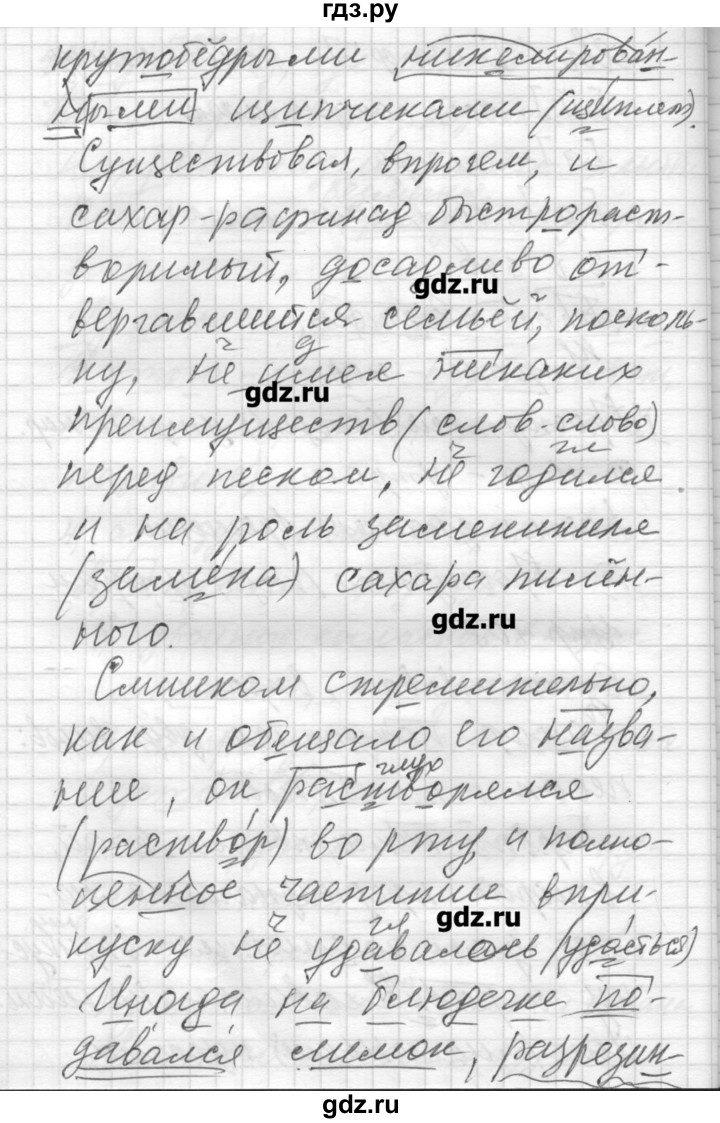 гдз.ру
кружобёдрыми никелирован-
ными щипчиками (щиплет).
Существовал, впрочем, и
сахар-рафинад быстрораст-
воримый, досадливо от-
gdz.ru
вергавшийся семьёй, посколь-
ч д
ку, не имея никаких
gdz.ru
преимуществ (слов-слово)
ч гл
перед песком, не годился
и на роль заменителя
(замена) сахара пилён-
gdz.ru
ного.
Слишком стремительно,
как и обещало его назва-
глух
ние, он растворялся
(раствор) во рту, и полно-
ценное чаепитие впри-
ч гл
gdz.ru
куску не удавалось (удасться)
Иногда на блюдечке по-
давался лимон, разрезан-
gdz.ru